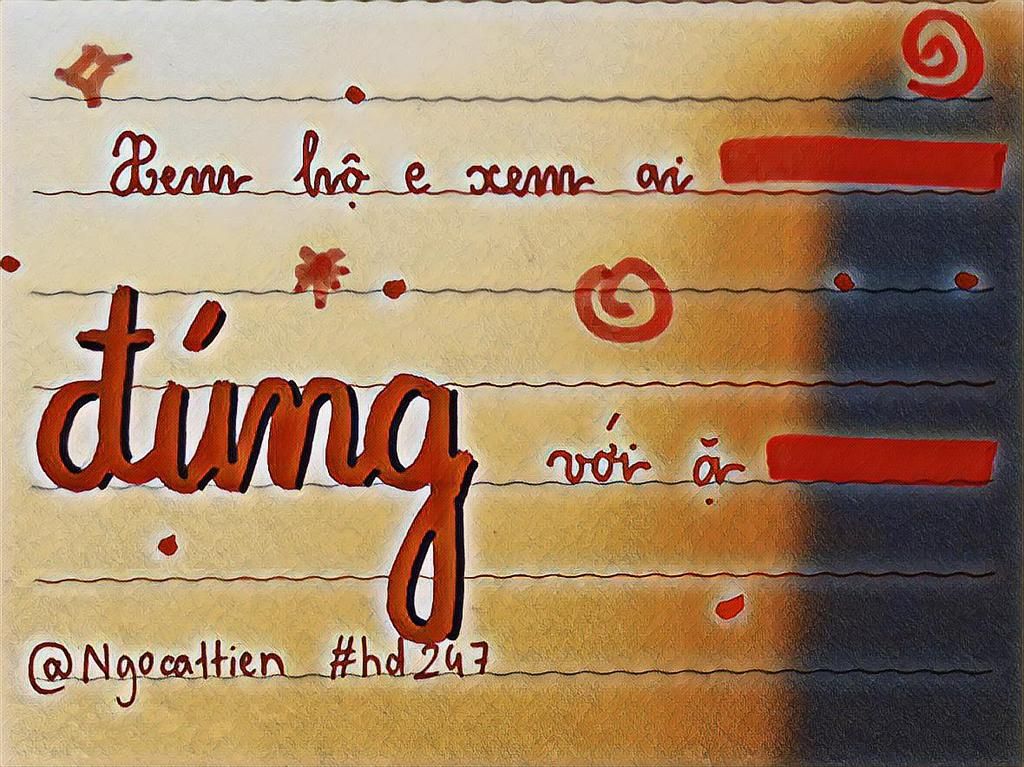 Xem hộ e xem ai
đúng với ạ
@Ngocattien #hd247